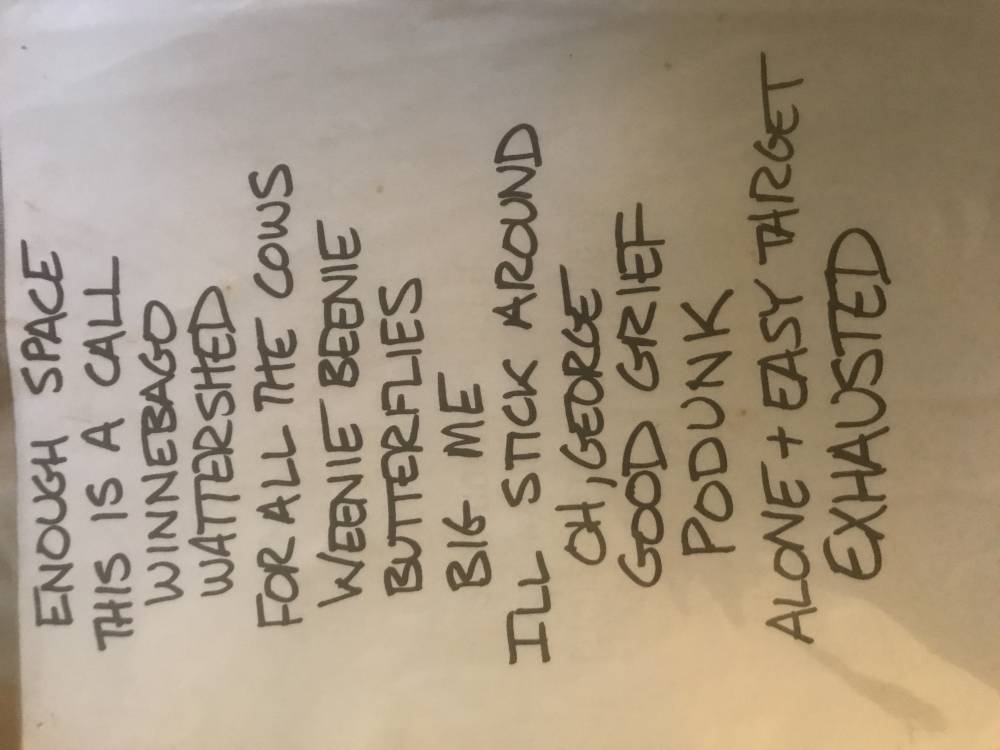 ENOUGH SPACE
THIS IS A CALL
WINNEBAGO
WATTERSHED
FOR ALL THE COWS
WEENIE BEENIE
BUTTERFLIES
BIG ME
ILL STICK AROUND
OH, GEORGE
GOOD GRIEF
PODUNK
ALONE + EASY TARGET
EXHAUSTED